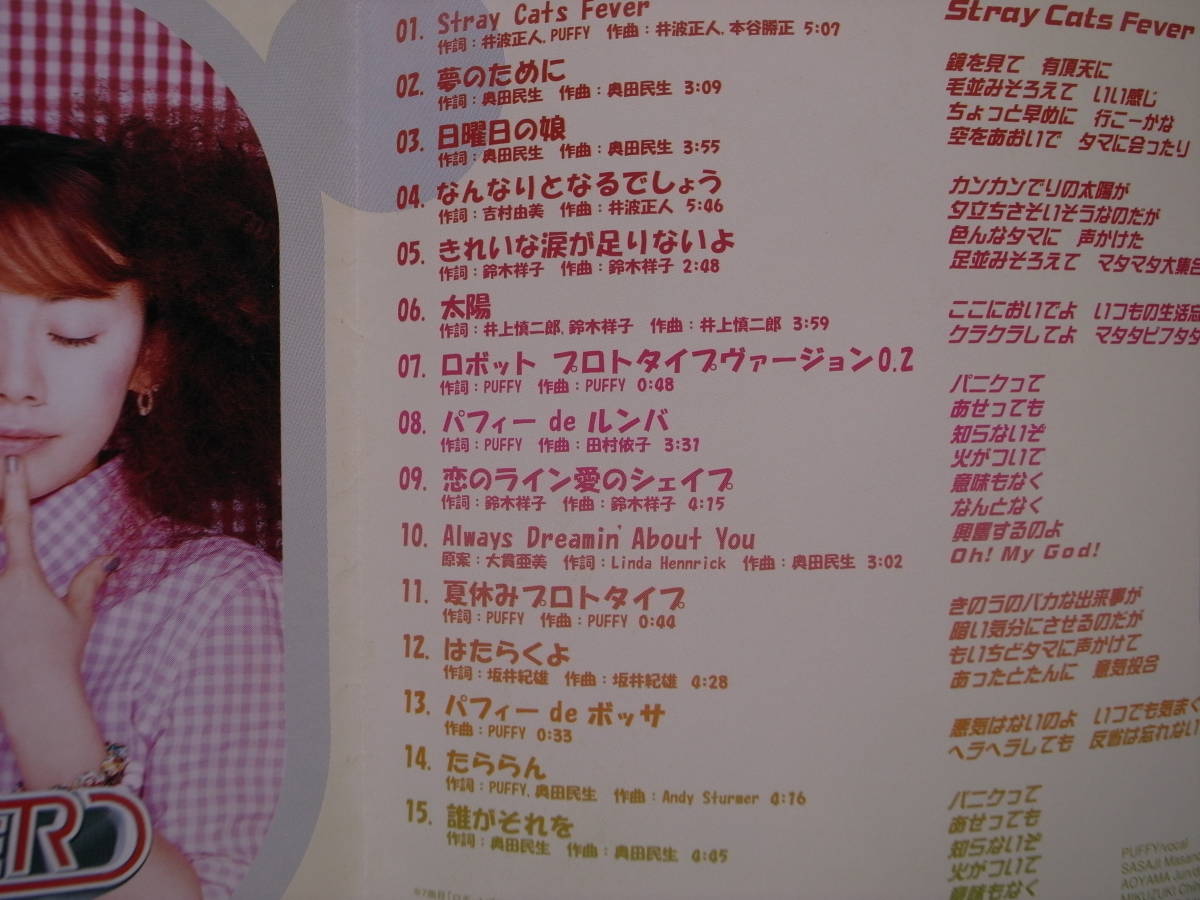 01. Stray Cats Fever
作詞：井波正人, PUFFY　作曲：井波正人, 本谷勝正 5:07
02. 夢のために
作詞：奥田民生　作曲：奥田民生 3:09
03. 日曜日の娘
作詞：奥田民生　作曲：奥田民生 3:55
04. なんなりとなるでしょう
作詞：吉村由美　作曲：井波正人 5:46
05. きれいな涙が足りないよ
作詞：鈴木祥子　作曲：鈴木祥子 2:48
06. 太陽
作詞：井上慎二郎, 鈴木祥子　作曲：井上慎二郎 3:59
07. ロボット プロトタイプヴァージョン0.2
作詞：PUFFY　作曲：PUFFY 0:48
08. パフィー de ルンバ
作詞：PUFFY　作曲：田村依子 3:31
09. 恋のライン愛のシェイプ
作詞：鈴木祥子　作曲：鈴木祥子 4:15
10. Always Dreamin' About You
原案：大貫亜美　作詞：Linda Hennrick　作曲：奥田民生 3:02
11. 夏休みプロトタイプ
作詞：PUFFY　作曲：PUFFY 0:44
12. はたらくよ
作詞：坂井紀雄　作曲：坂井紀雄 4:28
13. パフィー de ボッサ
作曲：PUFFY 0:33
14. たららん
作詞：PUFFY, 奥田民生　作曲：Andy Sturmer 4:16
15. 誰がそれを
作詞：奥田民生　作曲：奥田民生 4:45
Stray Cats Fever
鏡を見て　有頂天に
毛並みそろえて　いい感じ
ちょっと早めに　行こーかな
空をあおいで　タマに会ったり
カンカンでりの太陽が
夕立ちさそいそうなのだが
色んなタマに　声かけた
足並みそろえて　マタマタ大集合
ここにおいでよ　いつもの生活忘
クラクラしてよ　マタタビフタタ
パニクって
あせっても
知らないぞ
火がついて
意味もなく
なんとなく
興奮するのよ
Oh! My God!
きのうのバカな出来事が
暗い気分にさせるのだが
もいちどタマに声かけて
あったとたんに　意気投合
悪気はないのよ　いつでも気まぐ
ヘラヘラしても　反省は忘れない
パニクって
あせっても
知らないぞ
火がついて
意味もなく
PUFFY/vocal
SASAJI
AOYAMA
MIKUZUKI
ER